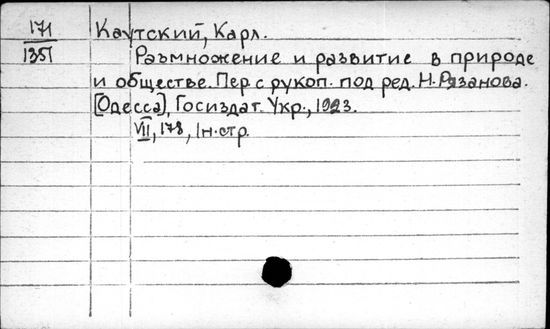 171
1351
Каутский, Карл.
Размножение и развитие в природе
и обществе. Пер с рукоп. под ред. Н. Рязанова.
[Одесса], Госиздат. Укр., 1923.
VII, 178, Iн.стр.